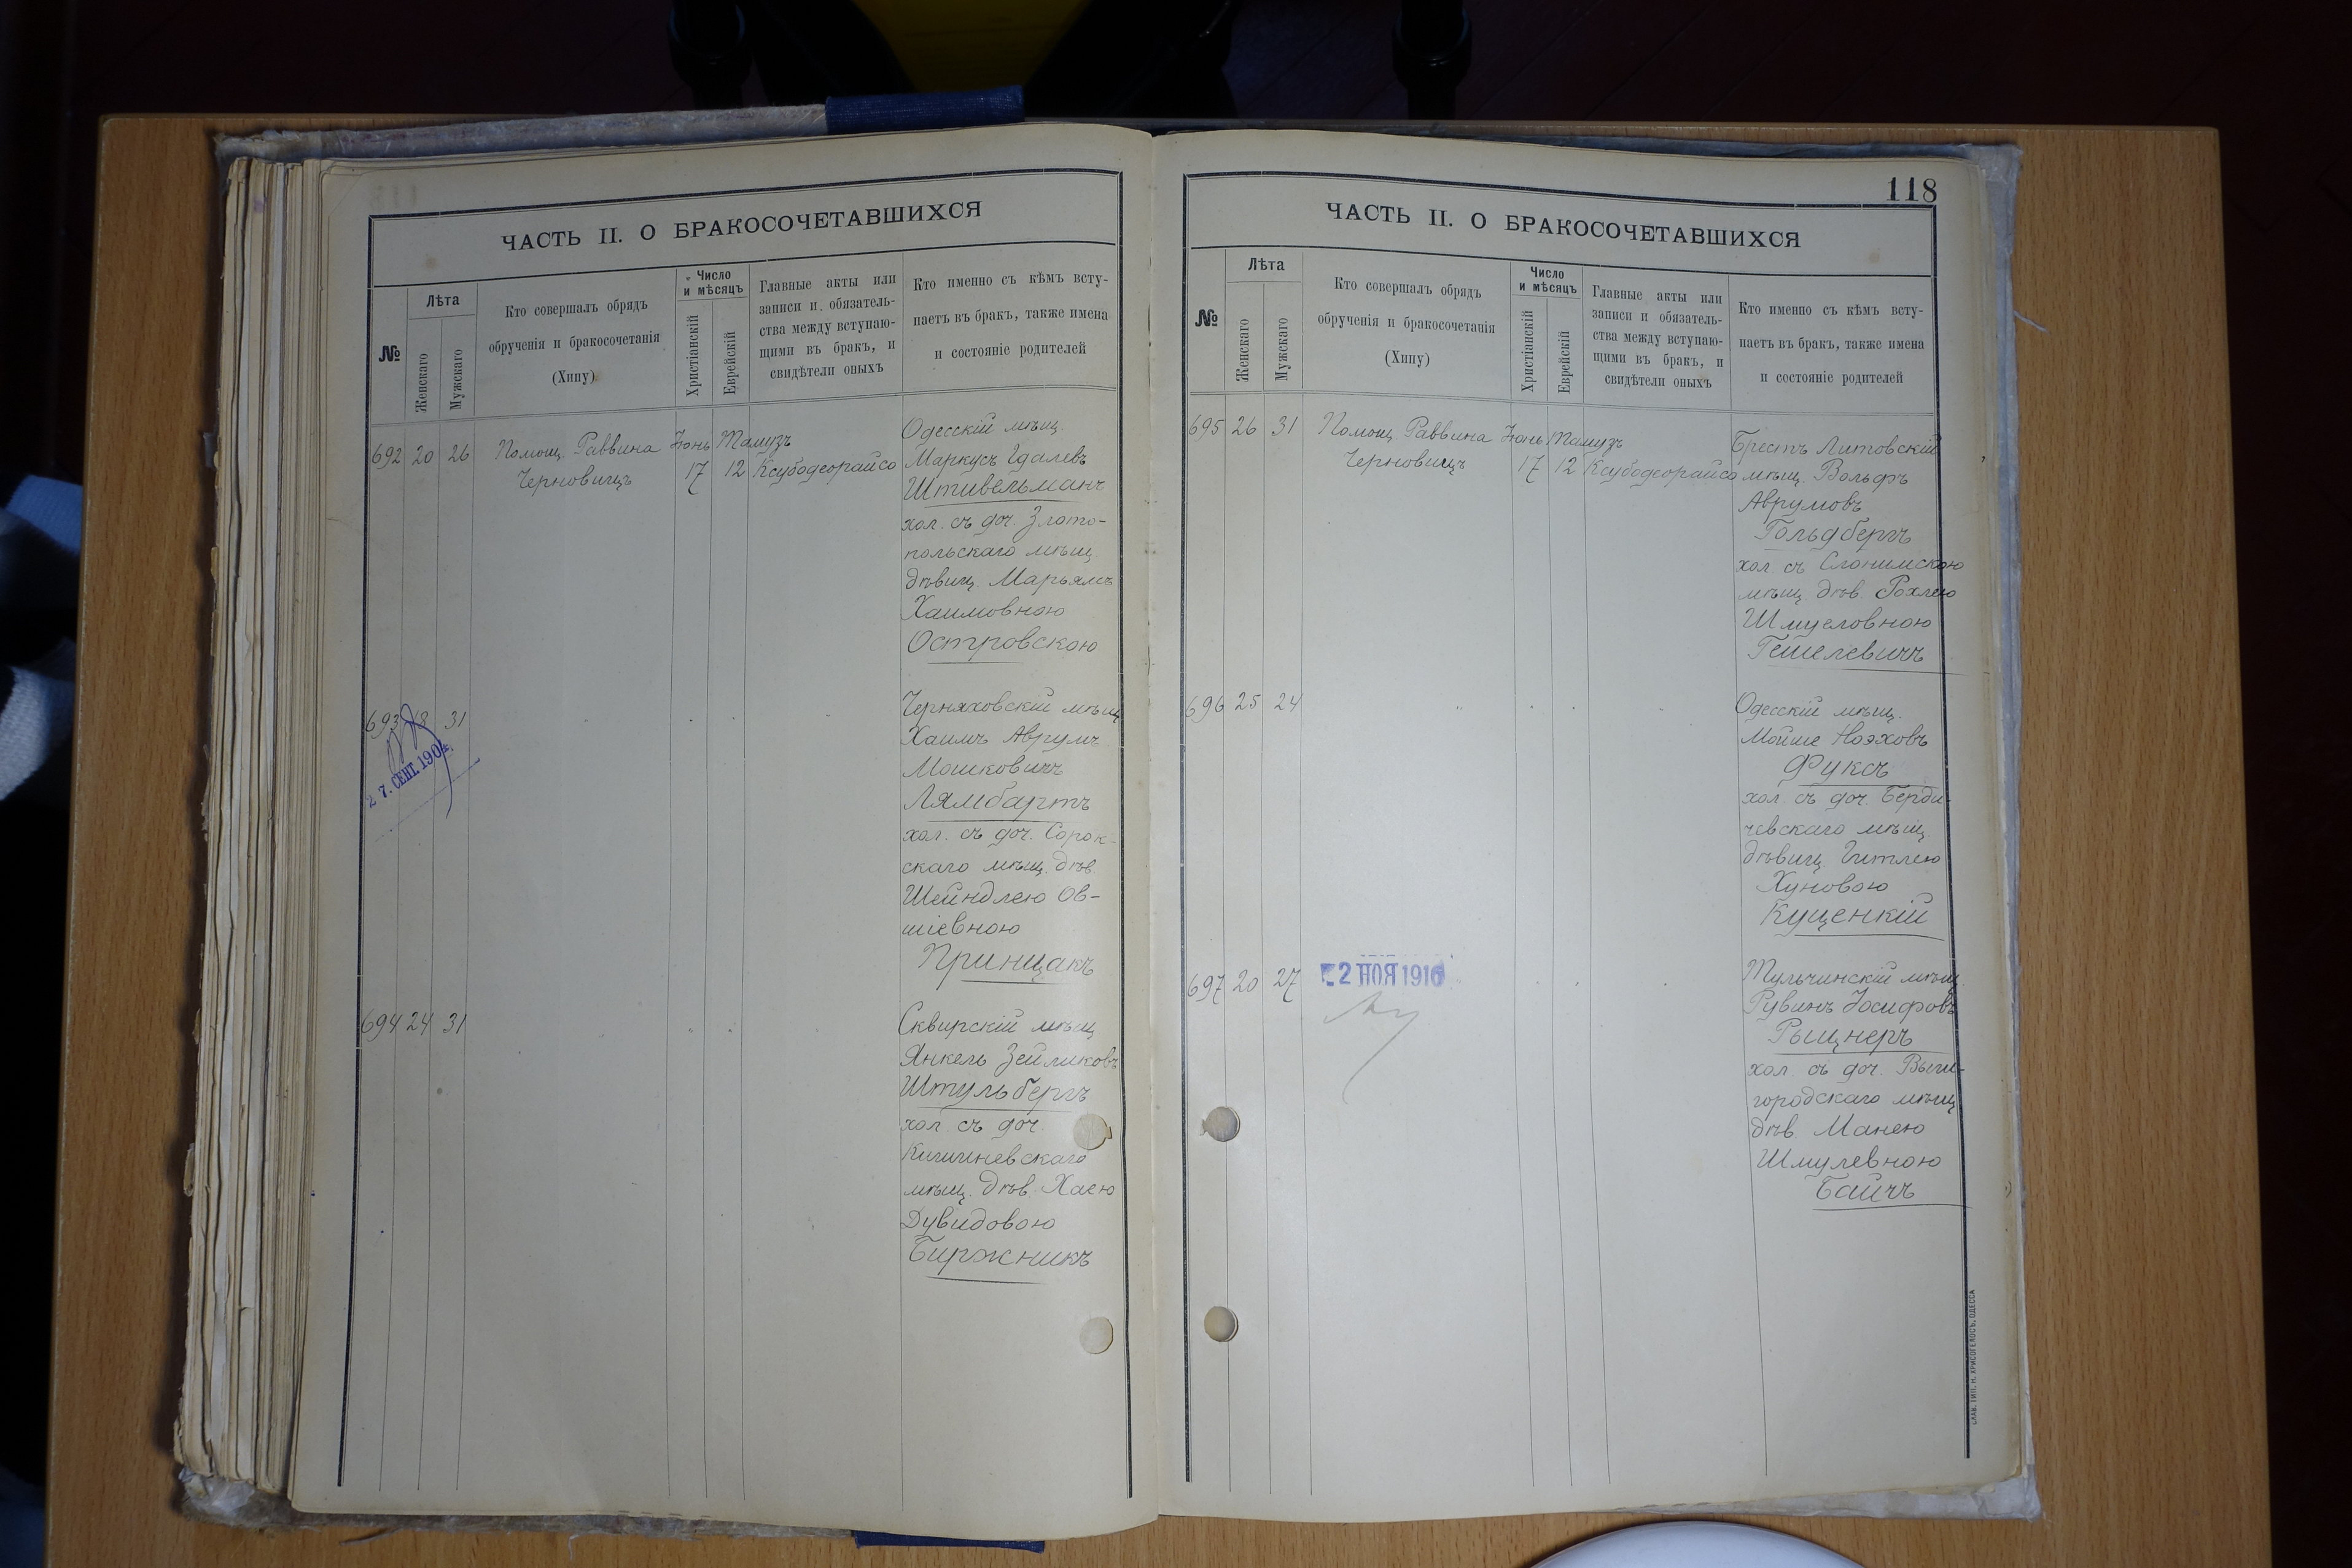 ЧАСТЬ II. О БРАКОСОЧЕТАВШИХСЯ
№
Лѣта
Женскаго
Мужскаго
Кто совершалъ обрядъ
обрученія и бракосочетанія
(Хипу)
Число
и мѣсяцъ
Христіанскій
Еврейскій
Главные акты или
записи и обязатель-
ства между вступаю-
щими въ бракъ, и
свидѣтели оныхъ
Кто именно съ кѣмъ всту-
паетъ въ бракъ, также имена
и состояніе родителей
692 20 26 Помощ. Раввина Іюнь Тамузъ
Черновицъ 17 12 Ксубодеорайсо
Одесскій мѣщ.
Маркусъ Гдалевъ
Штивельманъ
хол. съ доч. Злато-
польскаго мѣщ
дѣвиц. Марьямъ
Хаимовною
Островскою
693 18 31
27. СЕНТ. 190
Черняховскій мѣщ
Хаимъ Аврумъ
Мошковичъ
Лямбартъ
хол. съ доч. Сорок-
скаго мѣщ. дѣв.
Шейндлею Ов-
шіевною
Принцакъ
694 24 31
Сквирскій мѣщ
Янкель Зейликовъ
Штульбергъ
хол. съ доч.
Кишиневскаго
мѣщ. дѣв. Хаею
Дувидовою
Биржникъ
118
ЧАСТЬ II. О БРАКОСОЧЕТАВШИХСЯ
№
Лѣта
Женскаго
Мужскаго
Кто совершалъ обрядъ
обрученія и бракосочетанія
(Хипу)
Число
и мѣсяцъ
Христіанскій
Еврейскій
Главные акты или
записи и обязатель-
ства между вступаю-
щими въ бракъ, и
свидѣтели оныхъ
Кто именно съ кѣмъ всту-
паетъ въ бракъ, также имена
и состояніе родителей
695 26 31 Помощ. Раввина Іюнь Тамузъ
Черновицъ 17 12 Ксубодеорайсо
Брестъ Литовскій
мѣщ. Вольфъ
Аврумовъ
Гольдбергъ
хол съ Слонимскою
мѣщ. дѣв. Рохлею
Шмуеловною
Гешелевичъ
696 25 24
Одесскій мѣщ.
Мойше Ноэховъ
Фуксъ
хол. съ доч. Берди-
чевскаго мѣщ.
дѣвиц. Гитлею
Хуновою
Куценкій
697 20 27
2 НОЯ 1916
Тульчинскій мѣщ.
Рувинъ Іосифовъ
Рыцнеръ
хол. съ доч. Выш-
городскаго мѣщ
дѣв. Манею
Шмулевною
Байчъ
СКЛ. ТИП. М. ХРИСОГЕЛОСЪ, ОДЕССА